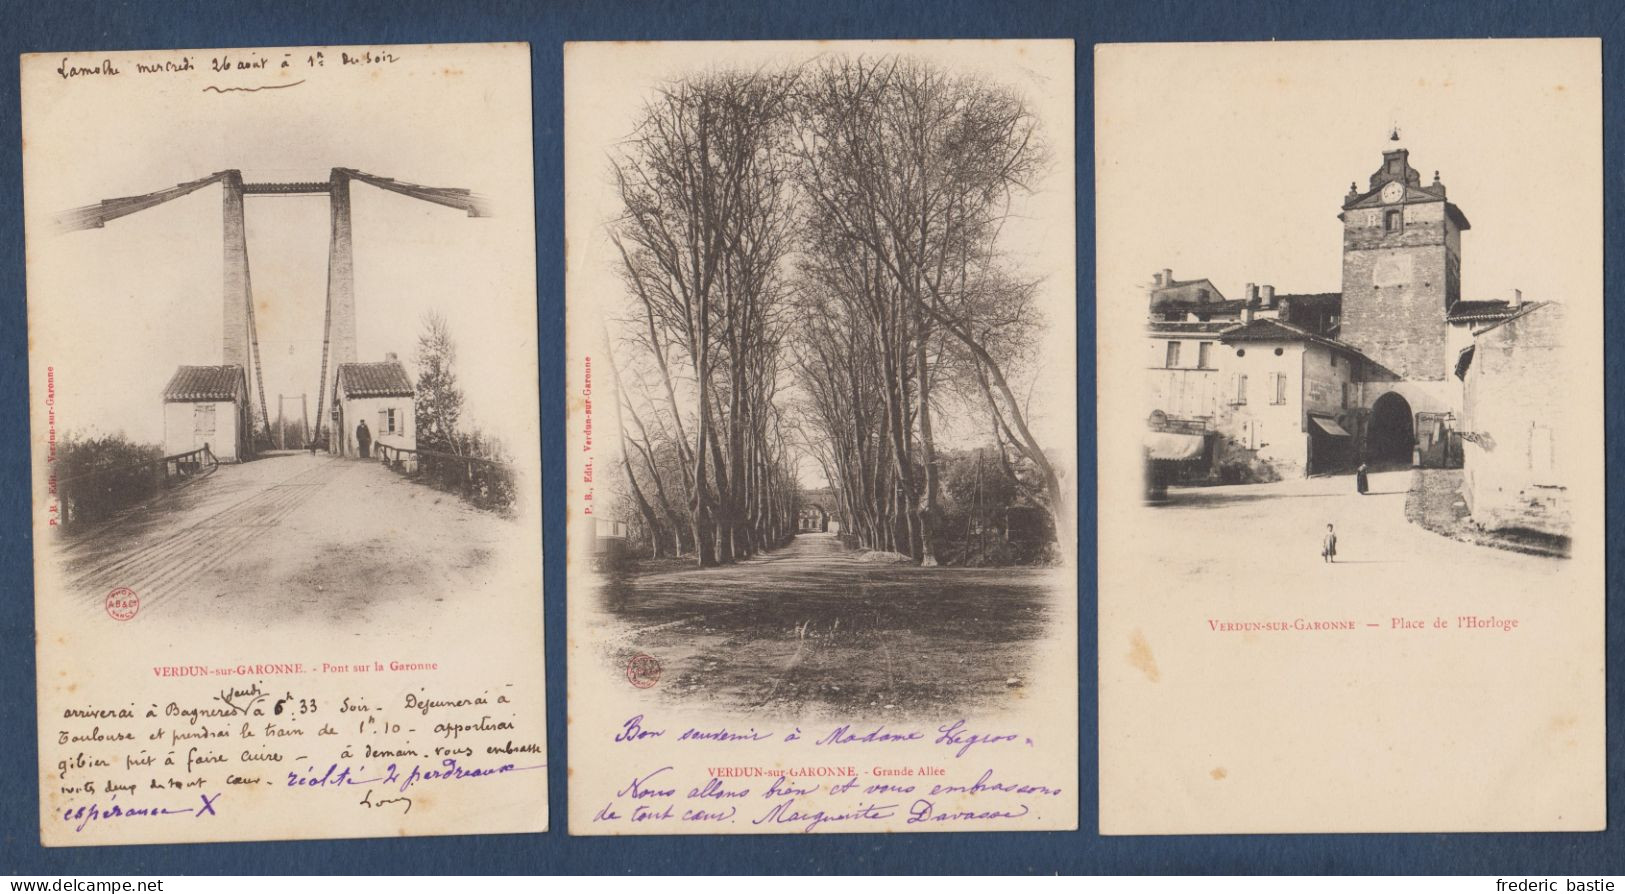 Lamothe mercredi 26 août à 1h du soir
P. B. Edit. Verdun-sur-Garonne
PHOT.
A.B & Cie
NANCY
VERDUN-sur-GARONNE. - Pont sur la Garonne
Jeudi
arriverai à Bagnères à 6h 33 Soir - Déjeunerai à
Toulouse et prendrai le train de 1h.10 - apporterai
gibier prêt à faire cuire - à demain. vous embrasse
tous deux de tout cœur. réalité 2 perdreaux
espérance X
Louis
P. B., Edit., Verdun-sur-Garonne
Bon souvenir à Madame Legros.
VERDUN-sur-GARONNE. - Grande Allée
Nous allons bien et vous embrassons
de tout cœur. Marguerite Davasse.
VERDUN-SUR-GARONNE — Place de l'Horloge
frederic bastie